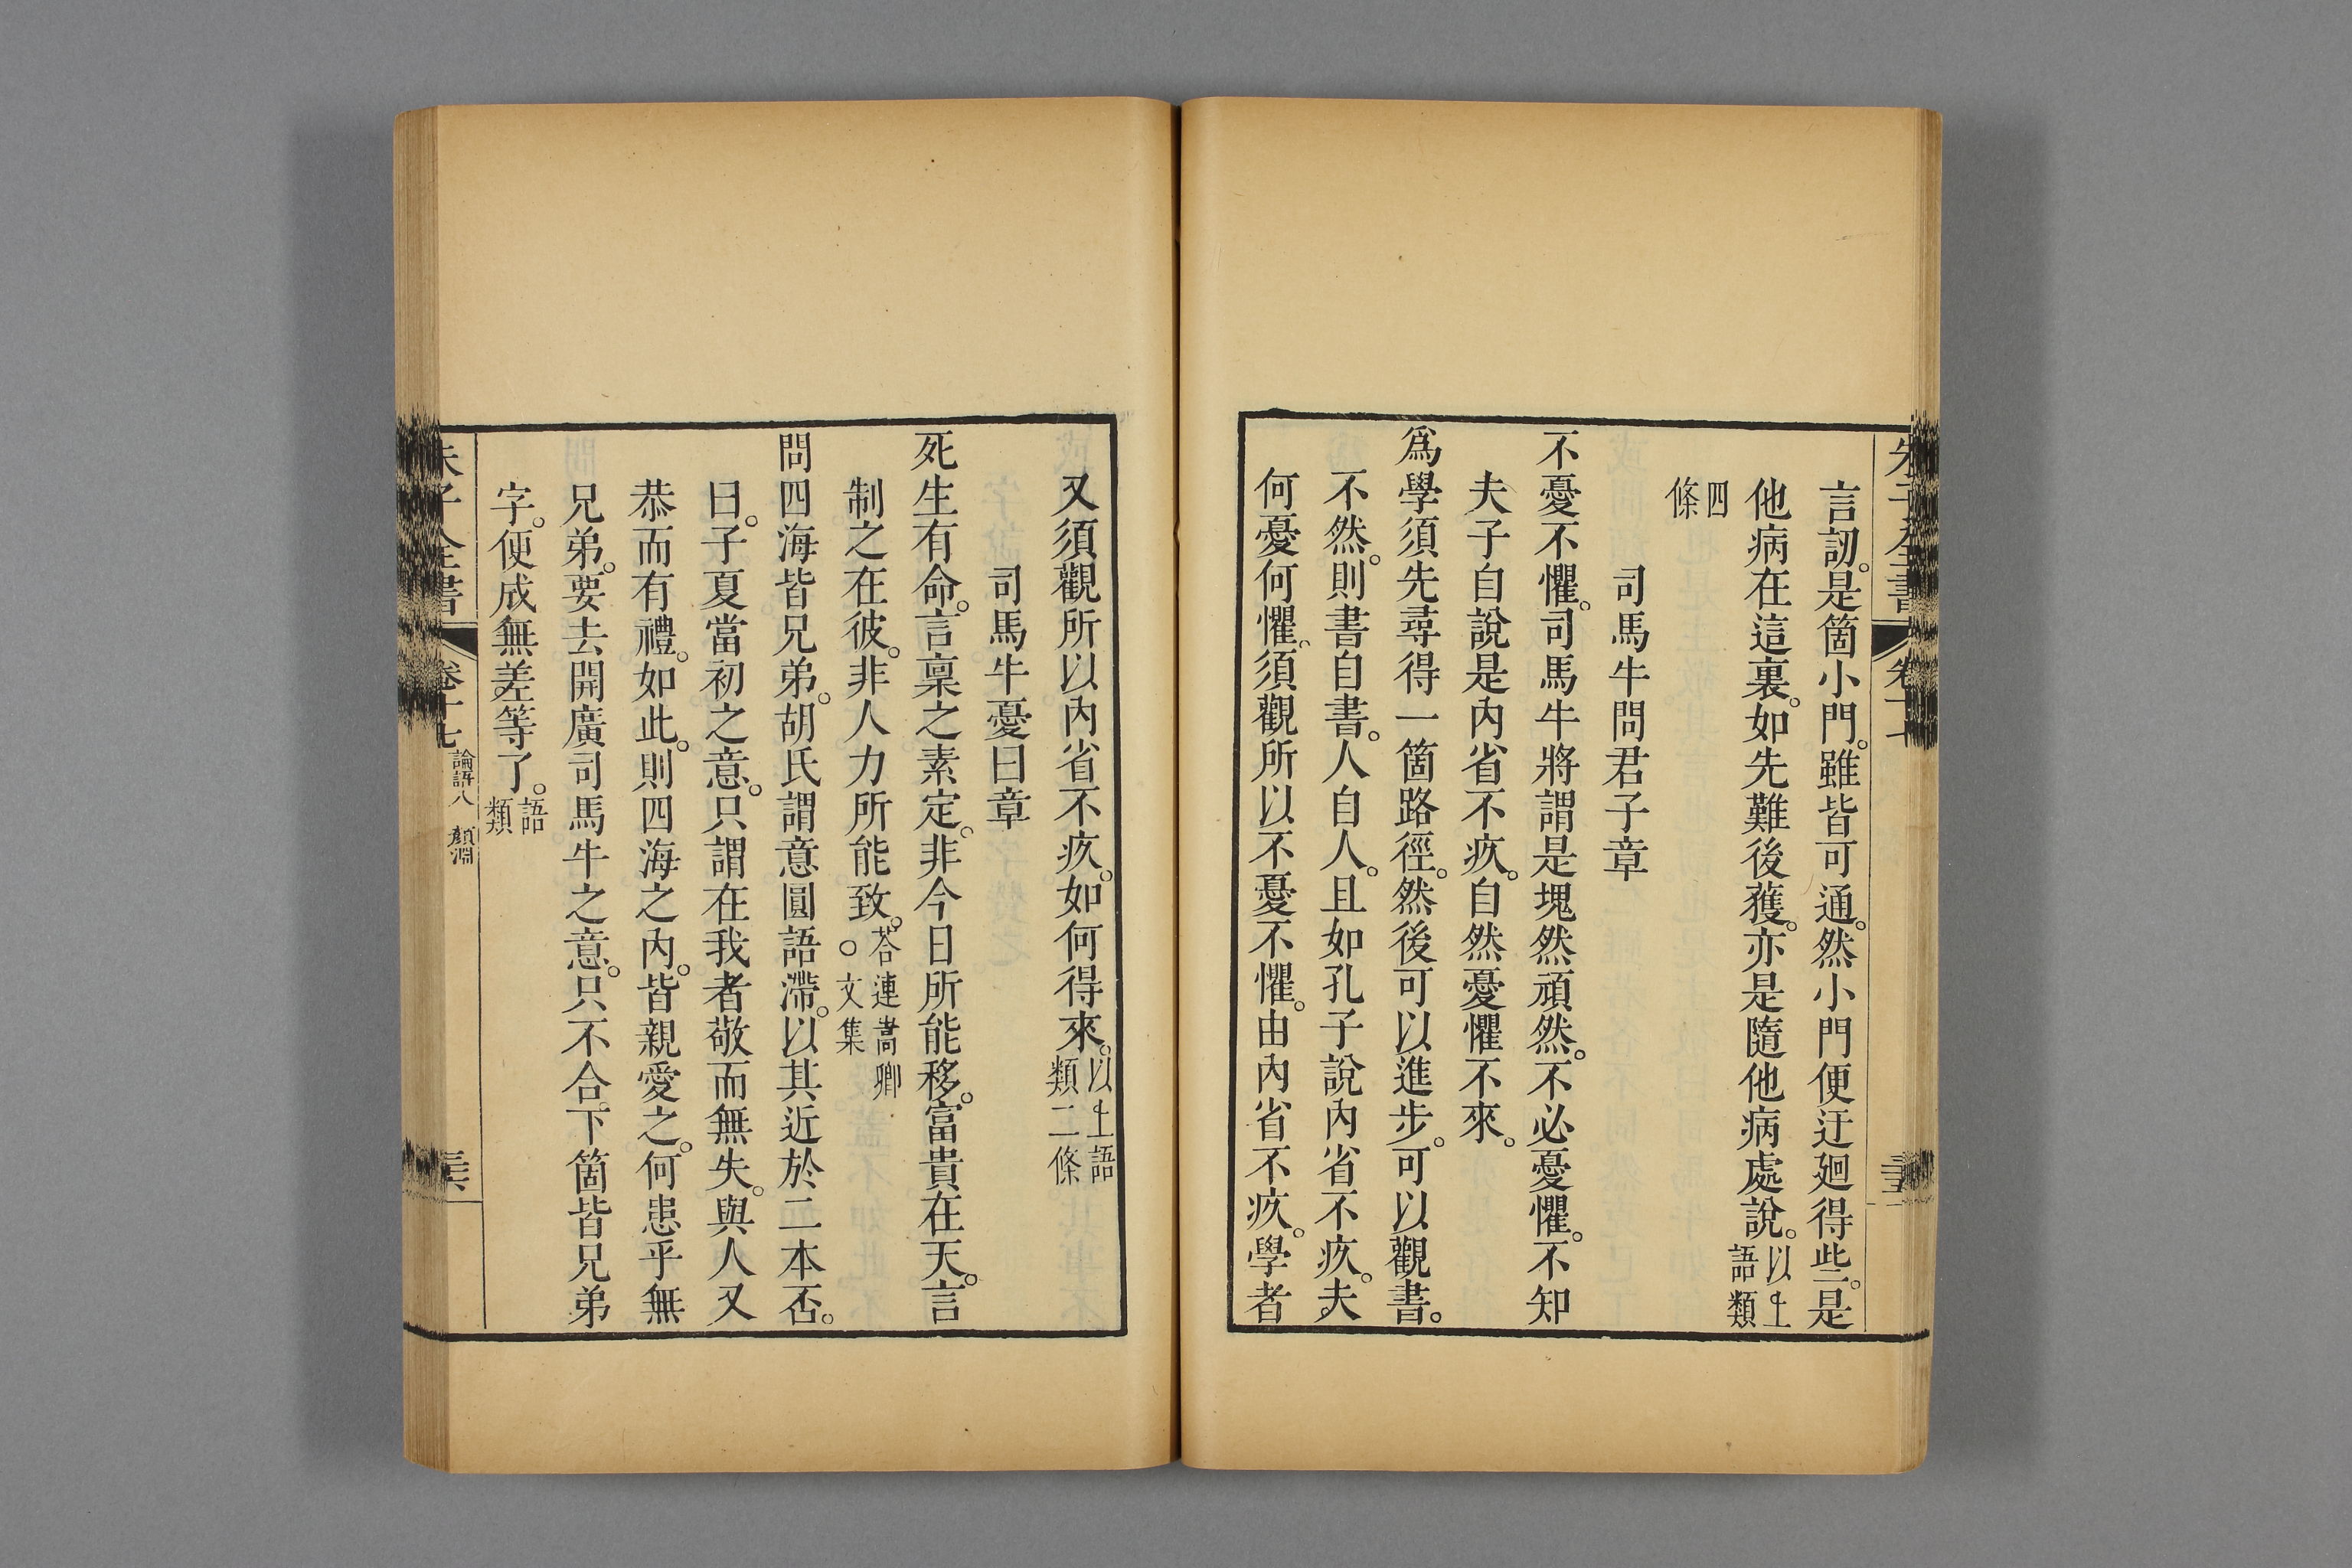 朱子全書
卷十七
三十五
言訒。是箇小門。雖皆可通。然小門便迂廻得些。是
他病在這裏。如先難後獲。亦是隨他病處說。以上
語類
四
條
司馬牛問君子章
不憂不懼。司馬牛將謂是塊然頑然。不必憂懼。不知
夫子自說是內省不疚。自然憂懼不來。
爲學須先尋得一箇路徑。然後可以進步。可以觀書。
不然。則書自書。人自人。且如孔子說內省不疚。夫
何憂何懼。須觀所以不憂不懼。由內省不疚。學者
又須觀所以內省不疚。如何得來。以上語
類二條
司馬牛憂曰章
死生有命。言稟之素定。非今日所能移。富貴在天。言
制之在彼。非人力所能致。荅連嵩卿
○文集
問四海皆兄弟。胡氏謂意圓語滯。以其近於二本否。
曰。子夏當初之意。只謂在我者敬而無失。與人又
恭而有禮。如此。則四海之內。皆親愛之。何患乎無
兄弟。要去開廣司馬牛之意。只不合下箇皆兄弟
字。便成無差等了。語
類
朱子全書
卷十七
論語八 顏淵